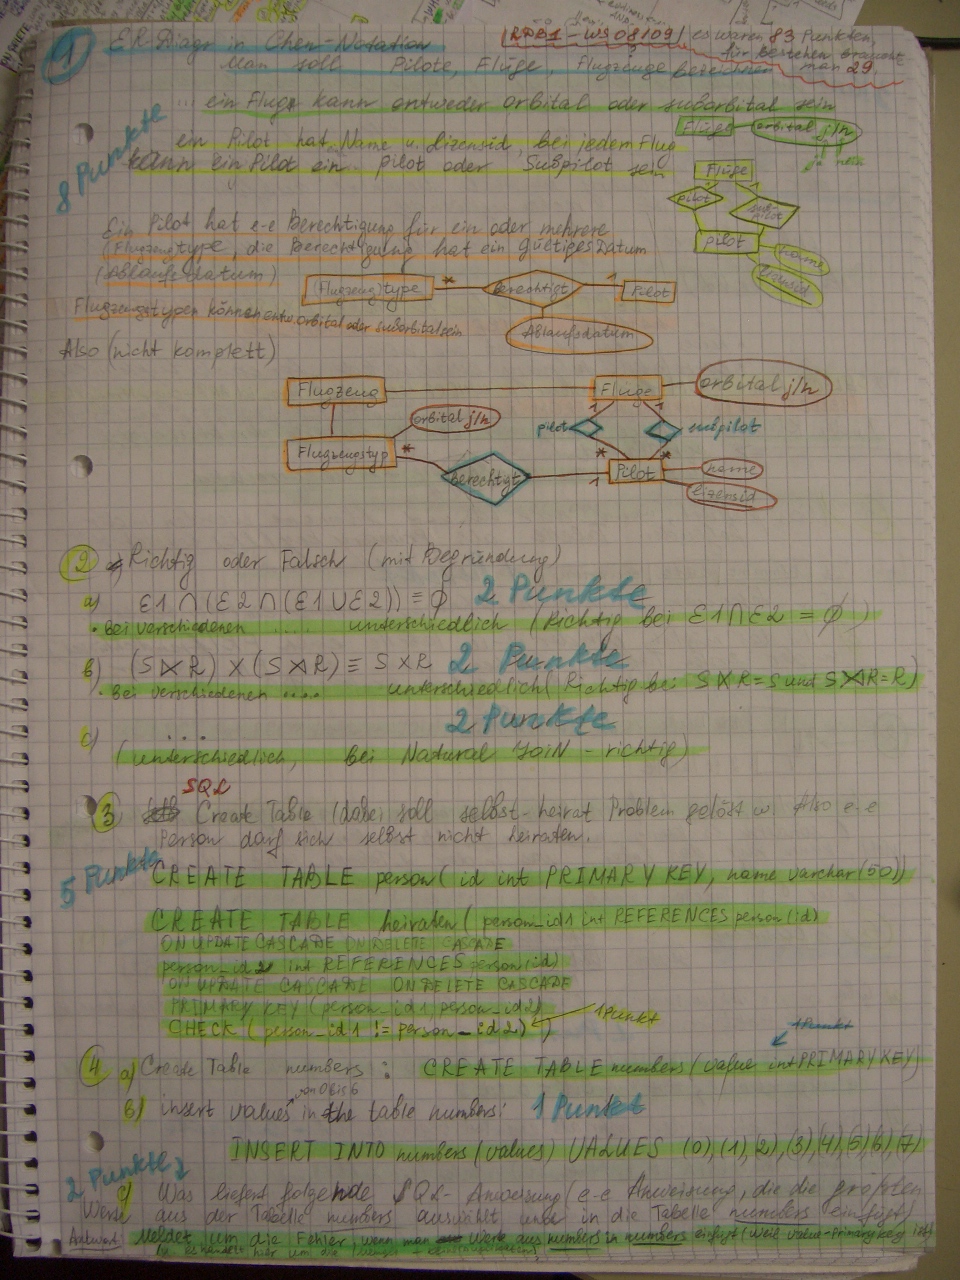 1 ER-Diagr in Chen-Notation
RDB1 - WS 08/09 es waren 83 Punkten,
für bestehen braucht
man 29.
Man soll Pilote, Flüge, Flugzeuge bezeichnen
... ein Flug kann entweder orbital oder suborbital sein
8 Punkte
Flüge orbital j/n
ja nein
ein Pilot hat Name u. lizensid, bei jedem Flug
kann ein Pilot ein pilot oder Subpilot sein
Flüge
pilot
sub-
pilot
pilot
name
lizensid
Ein Pilot hat e-e Berechtigung für ein oder mehrere
(Flugzeug)type, die Berechtigung hat ein gültiges Datum
(Ablaufsdatum)
(Flugzeug)type * berechtigt 1 Pilot
Ablaufsdatum
Flugzeugstypen können entw. orbital oder suborbital sein
Also (nicht komplett)
Flugzeug
Flüge
orbital j/n
orbital j/n
1 1
pilot
subpilot
Flugzeugstyp
*
* *
berechtigt
1
Pilot
name
lizensid
2 Richtig oder Falsch (mit Begründung)
a) E1 ∩ (E2 ∩ (E1 ∪ E2)) ≡ ∅ 2 Punkte
• Bei verschiedenen ..... unterschiedlich (Richtig bei E1 ∩ E2 = ∅)
b) (S ⋉ R) × (S ⋊ R) ≡ S × R 2 Punkte
• Bei verschiedenen ..... unterschiedlich (Richtig bei S ⋉ R = S und S ⋊ R = R)
2 Punkte
c) ...
(unterschiedlich, bei Natural JOIN - richtig)
SQL
3 Create Table (dabei soll selbst-heirat Problem gelöst w. Also e-e
Person darf sich selbst nicht heiraten.
5 Punkte
CREATE TABLE person( id int PRIMARY KEY, name varchar(50))
CREATE TABLE heiraten( person_id1 int REFERENCES person(id)
ON UPDATE CASCADE ON DELETE CASCADE
person_id2 int REFERENCES person(id)
ON UPDATE CASCADE ON DELETE CASCADE
PRIMARY KEY (person_id1, person_id2)
CHECK (person_id1 != person_id2) ) 1 Punkt
1 Punkt
4 a) Create Table numbers: CREATE TABLE numbers(value int PRIMARY KEY)
von 0 bis 6
b) insert values in the table numbers: 1 Punkt
INSERT INTO numbers(values) VALUES (0),(1),(2),(3),(4),(5),(6),(7)
2 Punkte
c) Was liefert folgende SQL-Anweisung (e-e Anweisung, die die größten
Werte aus der Tabelle numbers auswählt und in die Tabelle numbers einfügt)
Antwort: Meldet um die Fehler wenn man Werte aus numbers in numbers einfügt (weil value-primary key ist)
es handelt hier um die